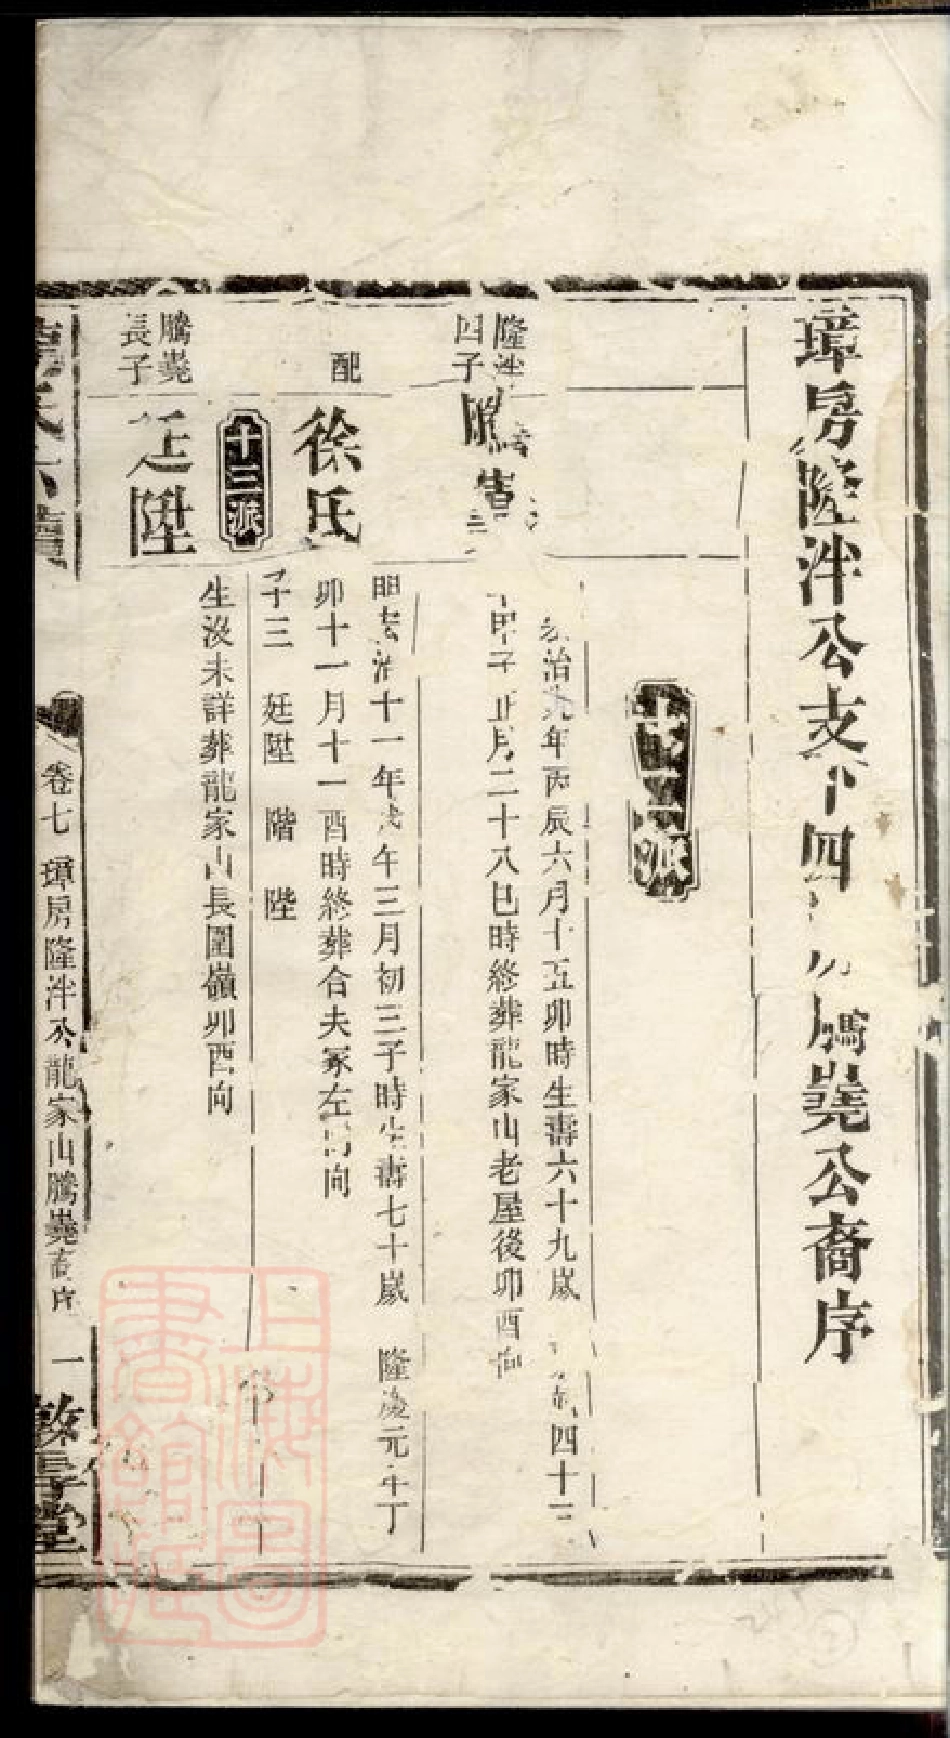 璋房隆泮公支下四房騰嶤公裔序
十二派
隆泮四子
騰嶤
弘治九年丙辰六月十五卯時生壽六十九歲 四十三
甲子正月二十八巳時終葬龍家山老屋後卯酉向
配
徐氏
明弘治十一年戊午三月初三子時生壽七十歲 隆慶元年丁
卯十一月十一酉時終葬合夫冢左 向
子三 廷陞 階 陛
十三派
騰嶤長子
廷陞
生沒未詳葬龍家山長圍嶺卯酉向
卷七 璋房隆泮公龍家山騰嶤裔序 一
敦 堂
上海圖書館藏